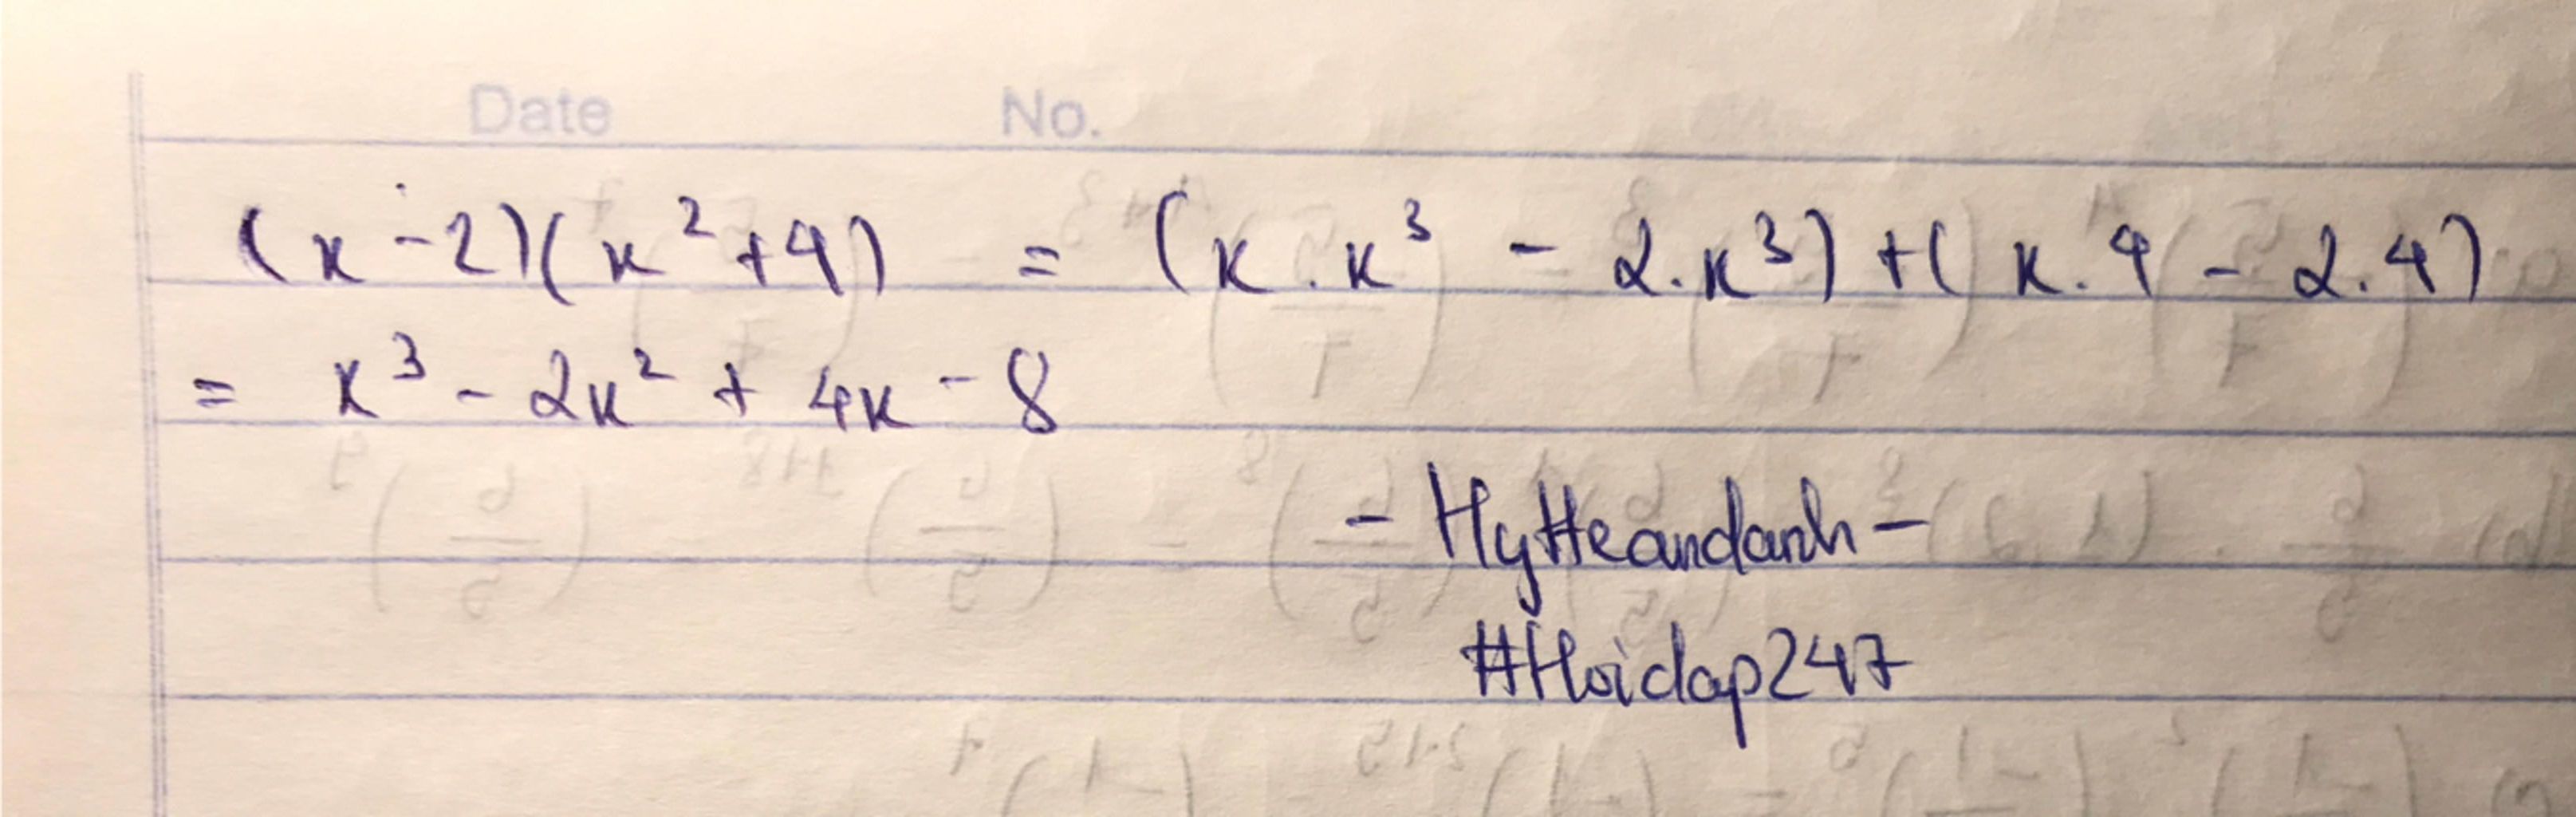 Date No.
(x-2)(x²+4) = (x.x³ - 2.x³)+(x.4 - 2.4)
= x³ - 2x² + 4x - 8
- HyHeandanh -
#Hoidap247